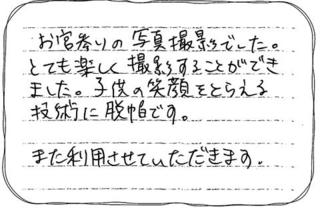 お宮参りの写真撮影でした。
とても楽しく撮影することができ
ました。子供の笑顔をとらえる
技術に脱帽です。
また利用させていただきます。